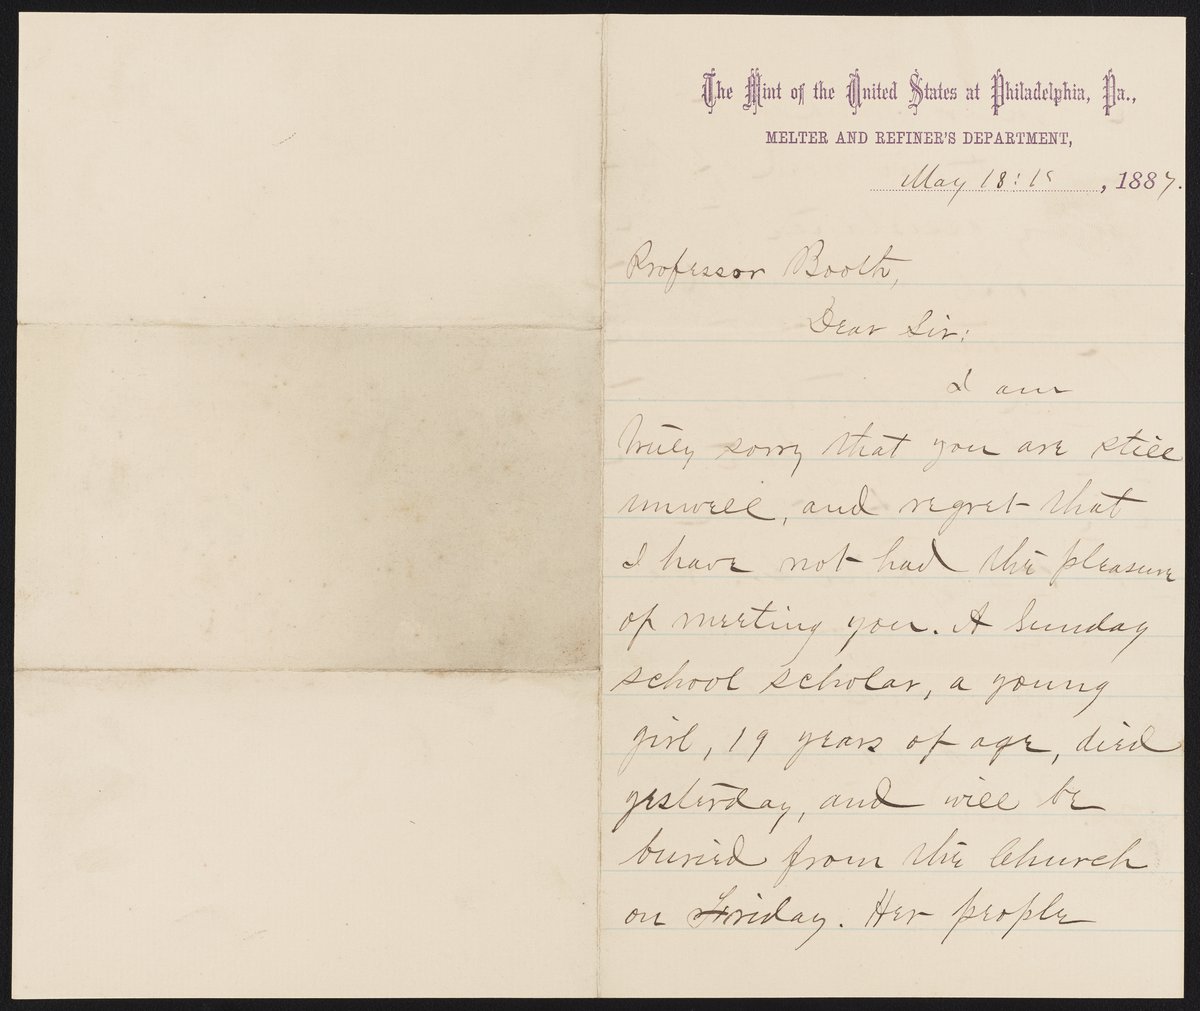 The Mint of the United States at Philadelphia, Pa.,
MELTER AND REFINER'S DEPARTMENT,
May 18:, 1887.
Professor Booth,
Dear Sir:
I am
truly sorry that you are still
unwell, and regret that
I have not had the pleasure
of meeting you. A Sunday
school scholar, a young
girl, 19 years of age, died
yesterday, and will be
buried from the Church
on Friday. Her people